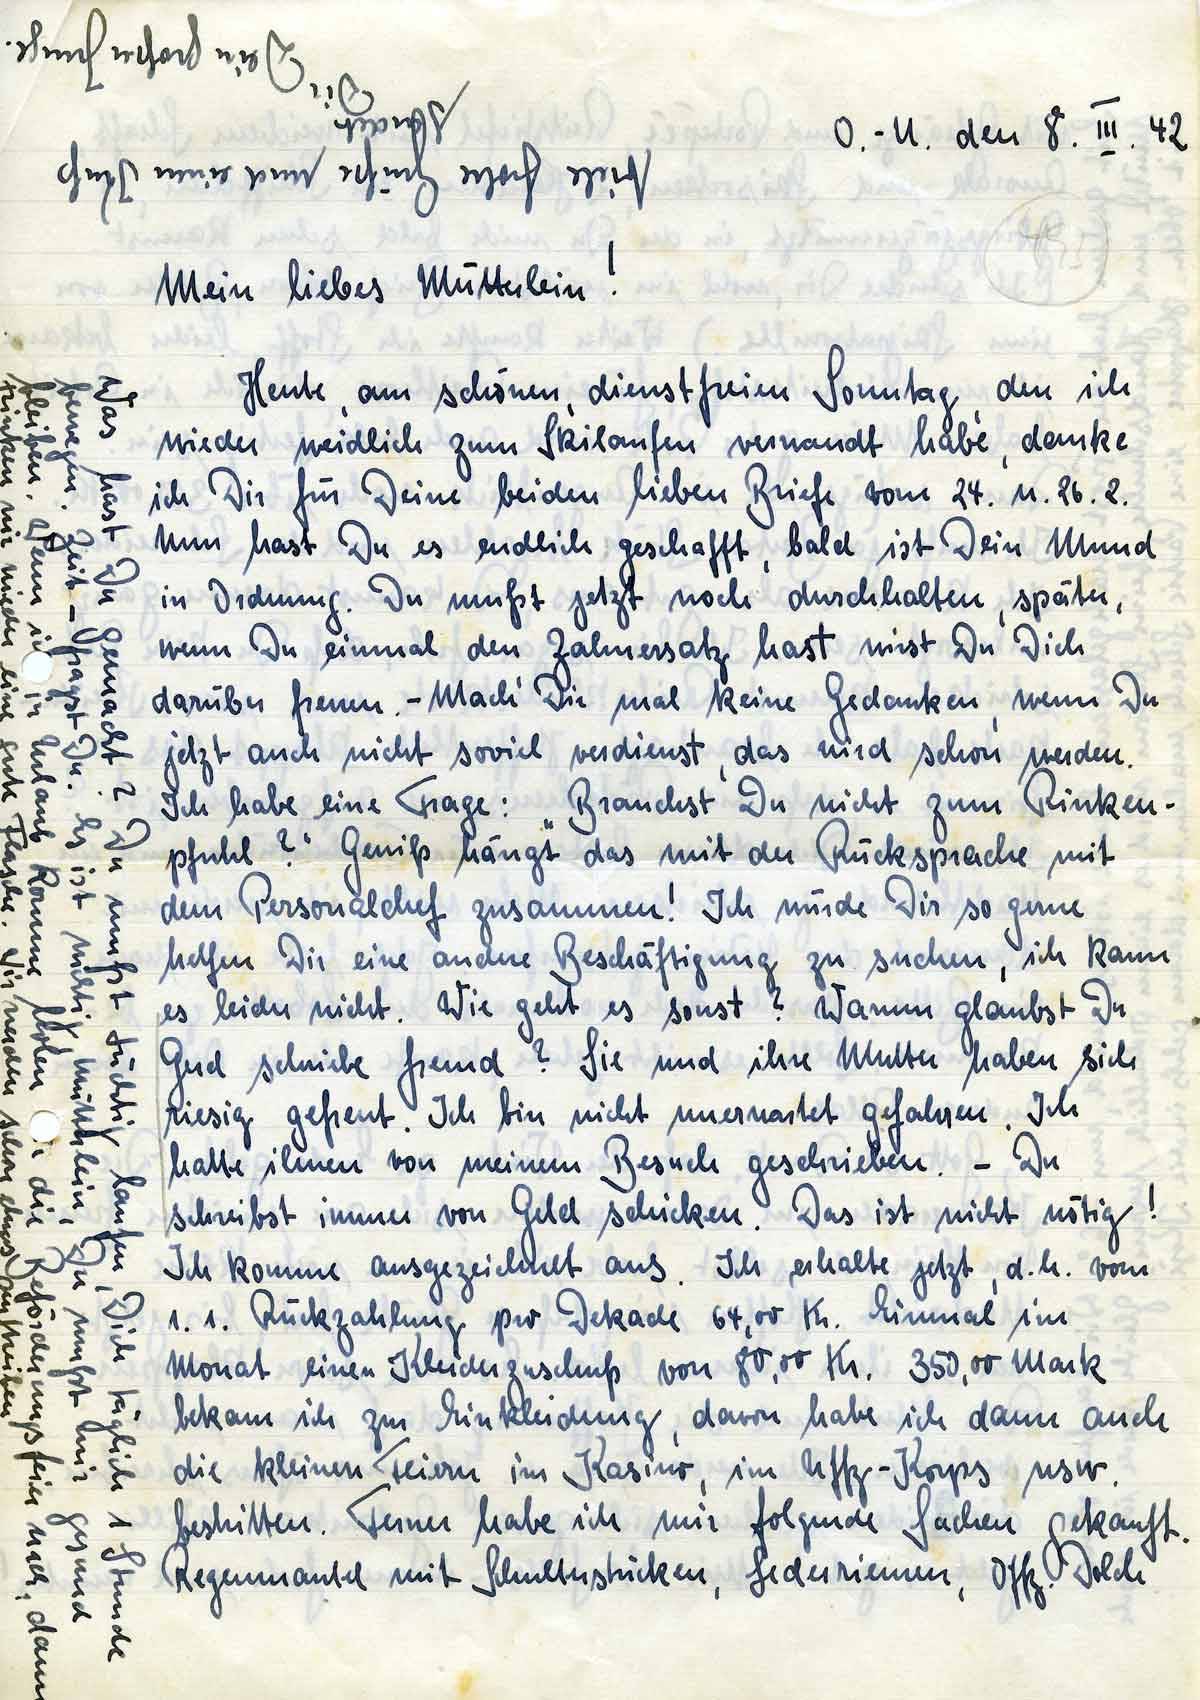 O.-U. den 8. III. 42
Mein liebes Mütterlein!
Heute, am schönen, dienstfreien Sonntag, den ich
wieder weidlich zum Skilaufen verwandt habe, danke
ich Dir für Deine beiden lieben Briefe vom 24. u. 26. 2.
Nun hast Du es endlich geschafft, bald ist Dein Mund
in Ordnung. Du mußt jetzt noch durchhalten, später,
wenn Du einmal den Zahnersatz hast wirst Du Dich
darüber freuen. - Mach' Dir mal keine Gedanken, wenn Du
jetzt auch nicht soviel verdienst, das wird schon werden.
Ich habe eine Frage: „Brauchst Du nicht zum Rinken-
pfuhl?“ Gewiß hängt das mit der Rücksprache mit
dem Personalchef zusammen! Ich würde Dir so gerne
helfen Dir eine andere Beschäftigung zu suchen, ich kann
es leider nicht. Wie geht es sonst? Warum glaubst Du
Gerd schriebe fremd? Sie und ihre Mutter haben sich
riesig gefreut. Ich bin nicht unerwartet gefahren. Ich
hatte ihnen von meinem Besuch geschrieben. - Du
schreibst immer von Geld schicken. Das ist nicht nötig!
Ich komme ausgezeichnet aus. Ich erhalte jetzt, d.h. vom
1. 1. Rückzahlung pro Dekade 64,00 Kr. Einmal im
Monat einen Kleiderzuschuß von 80,00 Kr. 350,00 Mark
bekam ich zur Einkleidung, davon habe ich dann auch
die kleinen Feiern im Kasino, im Uffz-Korps usw.
bestritten. Ferner habe ich mir folgende Sachen gekauft.
Regenmantel mit Schulterstücken, Lederriemen, Offz. Dolch
Was hast Du gemacht? Du mußt tüchtig laufen, Dich täglich 1 Stunde
bewegen. Zeit - fragst Du. Es ist wichtig Mütterlein, Du mußt mir gesund
bleiben. Wenn ich in Urlaub komme holen wir die Beförderungsfeier nach, dann
trinken wir wieder eine gute Flasche. Wir werden schon etwas auftreiben
Viele frohe Grüße und einen Kuß
sendet
Dir
Dein großer Junge.